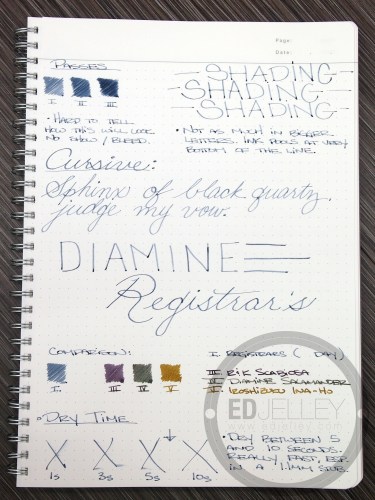 Page:
Date:
PASSES
SHADING
SHADING
SHADING
I. II. III.
• HARD TO TELL
HOW THIS WILL LOOK.
NO SHOW / BLEED.
• NOT AS MUCH IN BIGGER
LETTERS. INK POOLS AT VERY
BOTTOM OF THE LINE.
Cursive:
Sphinx of black quartz,
judge my vow.
DIAMINE
Registrar's
COMPARISON:
I. III IV V
I. REGISTRARS ( DAY)
II. R&K SCABIOSA
III DIAMINE SALAMANDER
IROSHIZUKU INA-HO
• DRY TIME
X X X X
1s 3s 5s 10s
• DRY BETWEEN 5
AND 10 SECONDS.
REALLY FAST, ESP.
IN A 1.1MM STUB.
EDJELLEY